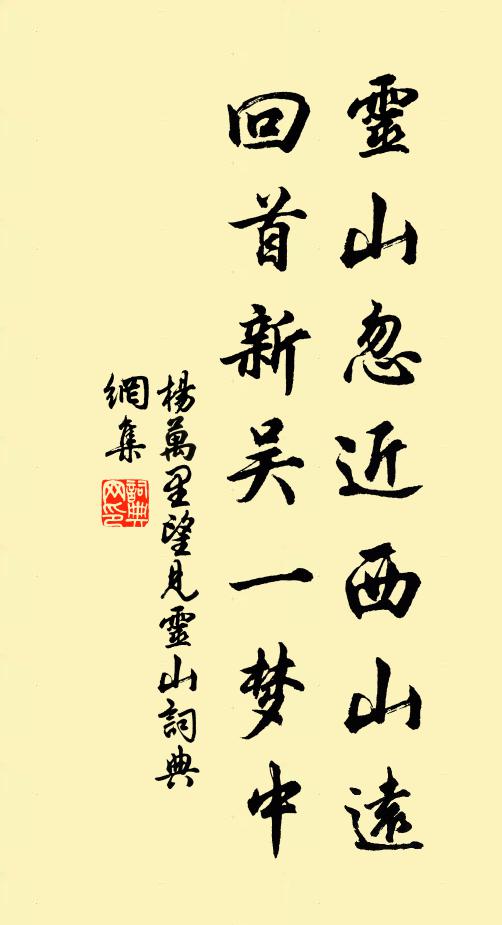 靈山忽近西山遠
回首新吴一梦中
楊萬里望見靈山詞典
網集
詞典
网印